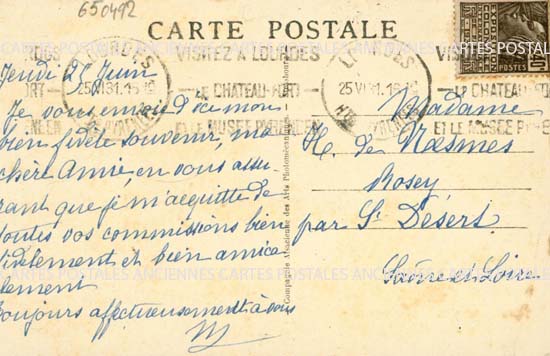 650492
CARTE POSTALE
LOURDES
25 VI 31
VISITEZ A LOURDES
LE CHATEAU-FORT
ET LE MUSÉE PYRÉNÉEN
LOURDES
25 VI 31
VISI
LE CHATEAU-FO
ET LE MUSÉE P
Jeudi 25 Juin
Je vous envoie d'ici mon
bien fidèle souvenir, ma
chère Amie, en vous assu
rant que je m'acquitte de
toutes vos commissions bien
fidèlement et bien amica
lement
Toujours affectueusement à vous
M
Compagnie Alsacienne des Arts Photomécaniques
Madame
H. de Næsmes
Rosey
par St Désert
Saône et Loire
CARTES POSTALES ANCIENNES CARTES POSTALES ANCIENNES